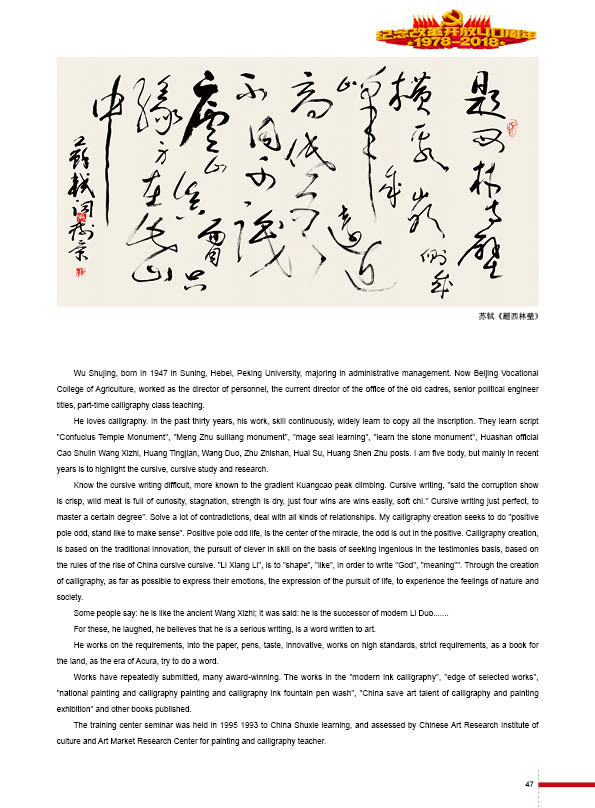 纪念改革开放40周年
★1978-2018★
题西林壁
横看成岭侧成
峰远近
高低各
不同不识
庐山真面目只
缘身在此山
中
苏轼词树景
苏轼《题西林壁》
Wu Shujing, born in 1947 in Suning, Hebei, Peking University, majoring in administrative management. Now Beijing Vocational
College of Agriculture, worked as the director of personnel, the current director of the office of the old cadres, senior political engineer
titles, part-time calligraphy class teaching.
He loves calligraphy. In the past thirty years, his work, skill continuously, widely learn to copy all the inscription. They learn script
"Confucius Temple Monument", "Meng Zhu suiliang monument", "mage seal learning", "learn the stone monument", Huashan official
Cao Shulin Wang Xizhi, Huang Tingjian, Wang Duo, Zhu Zhishan, Huai Su, Huang Shen Zhu posts. I am five body, but mainly in recent
years is to highlight the cursive, cursive study and research.
Know the cursive writing difficult, more known to the gradient Kuangcao peak climbing. Cursive writing, "said the corruption show
is crisp, wild meat is full of curiosity, stagnation, strength is dry, just four wins are wins easily, soft chi." Cursive writing just perfect, to
master a certain degree". Solve a lot of contradictions, deal with all kinds of relationships. My calligraphy creation seeks to do "positive
pole odd, stand like to make sense". Positive pole odd life, is the center of the miracle, the odd is out in the positive. Calligraphy creation,
is based on the traditional innovation, the pursuit of clever in skill on the basis of seeking ingenious in the testimonies basis, based on
the rules of the rise of China cursive cursive. "Li Xiang Li", is to "shape", "like", in order to write "God", "meaning"". Through the creation
of calligraphy, as far as possible to express their emotions, the expression of the pursuit of life, to experience the feelings of nature and
society.
Some people say: he is like the ancient Wang Xizhi; it was said: he is the successor of modern Li Duo.......
For these, he laughed, he believes that he is a serious writing, is a word written to art.
He works on the requirements, into the paper, pens, taste, innovative, works on high standards, strict requirements, as a book for
the land, as the era of Acura, try to do a word.
Works have repeatedly submitted, many award-winning. The works in the "modern ink calligraphy", "edge of selected works",
"national painting and calligraphy painting and calligraphy ink fountain pen wash", "China save art talent of calligraphy and painting
exhibition" and other books published.
The training center seminar was held in 1995 1993 to China Shuxie learning, and assessed by Chinese Art Research Institute of
culture and Art Market Research Center for painting and calligraphy teacher.
47